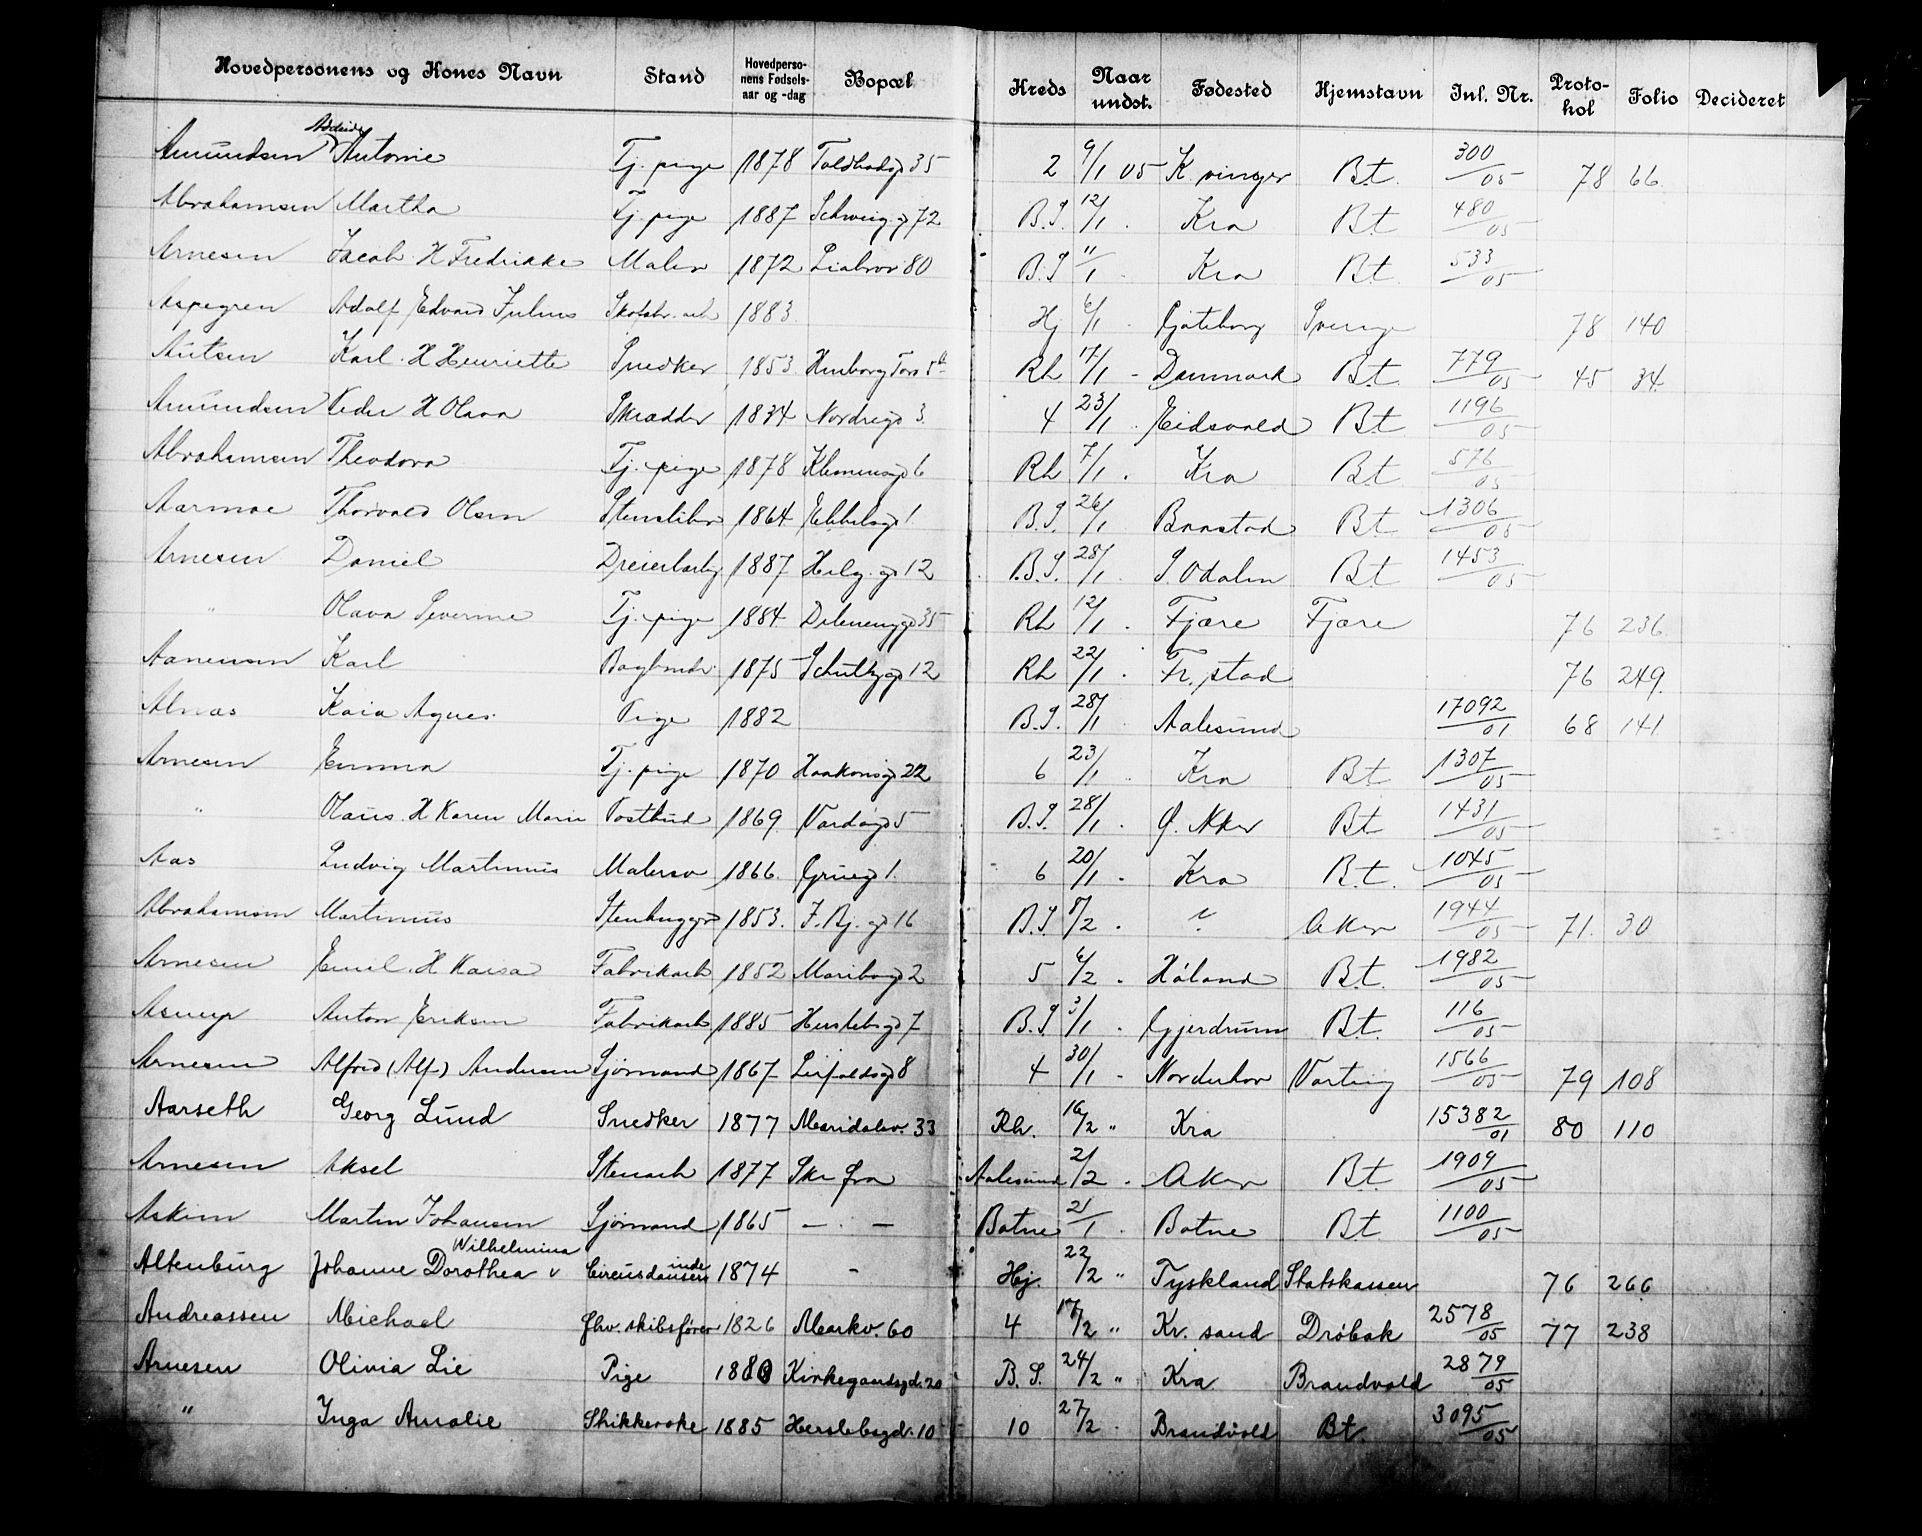 Hovedpersonens og Kones Navn Stand Hovedpersonens Fødselsaar og -dag Bopæl Kreds Naar undst. Fødested Hjemstavn Inl. Nr. Protokol Folio Decideret
Amundsen Antonie Tj. pige 1878 Toldbodg 35 2 9/1 05 K.vinger Bt. 300/05 78 66
Abrahamsen Martha Tj. pige 1887 Schweig. g 72 B.S 12/1 Kra Bt 480/05
Arnesen Jacob H Fredrikke Maler 1872 Liabrov 80 B.S 11/1 Kra Bt 533/05
Aspegren Adolf Edvard Julius 1883 Hj 6/1 Gøteborg Sverige 78 140
Karl H Henriette Snedker 1853 Rh 17/1 Danmark Bt. 779/05 45 34
Amundsen Peder H Olava Skrædder 1834 Nordregd 3 4 23/1 Eidsvold Bt 1196/05
Abrahamsen Theodora Tj. pige 1878 Klemensgd 6 Rh 7/1 Kra Bt 576/05
Aarmoe Thorvald Olsen 1864 B.S. 26/1 Bt 1306/05
Arnesen Daniel 1887 Helg. gd 12 B.S. 28/1 S. Odalen Bt 1453/05
" Olava Severine Tj. pige 1884 Delenenggd 35 Rh 12/1 Fjære Fjære 76 236
Aanensen Karl Bogbinder 1875 12 Rh 22/1 Fr.stad 76 249
Alnæs Kaia Agnes Pige 1882 B.S. 28/1 Aalesund 17092/01 68 141
Arnesen Emma Tj. pige 1870 Haakonsg 22 6 23/1 Kra Bt 1307/05
" Olaus H Karen Marie Postbud 1869 Vardøgd 5 B.S. 28/1 Ø. Aker Bt 1431/05
Aas Ludvig Martinius Malersv 1866 1 6 20/1 Kra Bt. 1045/05
Abrahamsen Martinius Stenhugger 1853 J. Bj. gd 16 B.S. 8/2 ? Aker 1944/05 71 30
Arnesen Emil H Kaisa Fabrikarb 1852 Maribogd 2 5 6/2 Høland Bt. 1982/05
Asrup Anton Eriksen Fabrikarb 1885 Herslebsgd 7 B.S 3/1 Gjerdrum Bt. 116/05
Arnesen Alfred (Alf) Andersen Sjømand 1867 8 4 30/1 Norderhov Varteig 1566/05 79 108
Aarseth Georg Lund Snedker 1877 Maridalsv. 33 Rh. 16/2 " Kra 15382/01 80 110
Arnesen Aksel Stenarb 1877 Ske fra Aalesund 2/2 Aker Bt. 1909/05
Askim Martin Johansen Sjømand 1865 — — Botne 21/1 Botne Bt 1100/05
Altenburg Johanne Dorothea Wilhelmina v Circusdanserinde 1874 - Hj. 22/2 " Tyskland Statskassen 76 266
Andreassen Michael fhv. skibsfører 1826 Markv. 60 4 17/2 " Kr. sand Drøbak 2578/05 77 238
Arnesen Olivia Lie Pige 1880 Kirkegaardsgd. 20 B. S. 24/2 " Kra Brandvold 2879/05
" Inga Amalie 1885 Herslebsgd. 10 10 27/2 Brandvold Bt. 3095/05